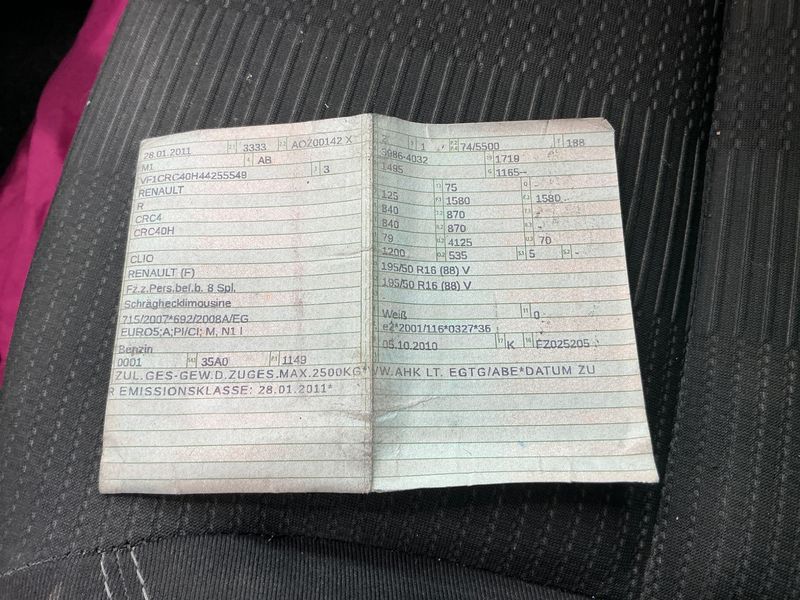 28.01.2011 3333 AOZ00142 X
M1 AB
VF1CRC40H44255549 3
RENAULT
R
CRC4
CRC40H
CLIO
RENAULT (F)
Fz.z.Pers.bef.b. 8 Spl.
Schräghecklimousine
715/2007*692/2008A/EG
EURO5;A;PI/CI; M, N1 I
Benzin
0001 35A0 1149
ZUL.GES-GEW.D.ZUGES.MAX.2500KG*
R EMISSIONSKLASSE: 28.01.2011*
2 1 74/5500 188
3986-4032 1719
1495 1165--
75 -
125 1580 1580
840 870 -
840 870 -
79 4125 70
1200 535 5 -
195/50 R16 (88) V
195/50 R16 (88) V
Weiß 0
e2*2001/116*0327*36
05.10.2010 K FZ025205
VW.AHK LT. EGTG/ABE*DATUM ZU